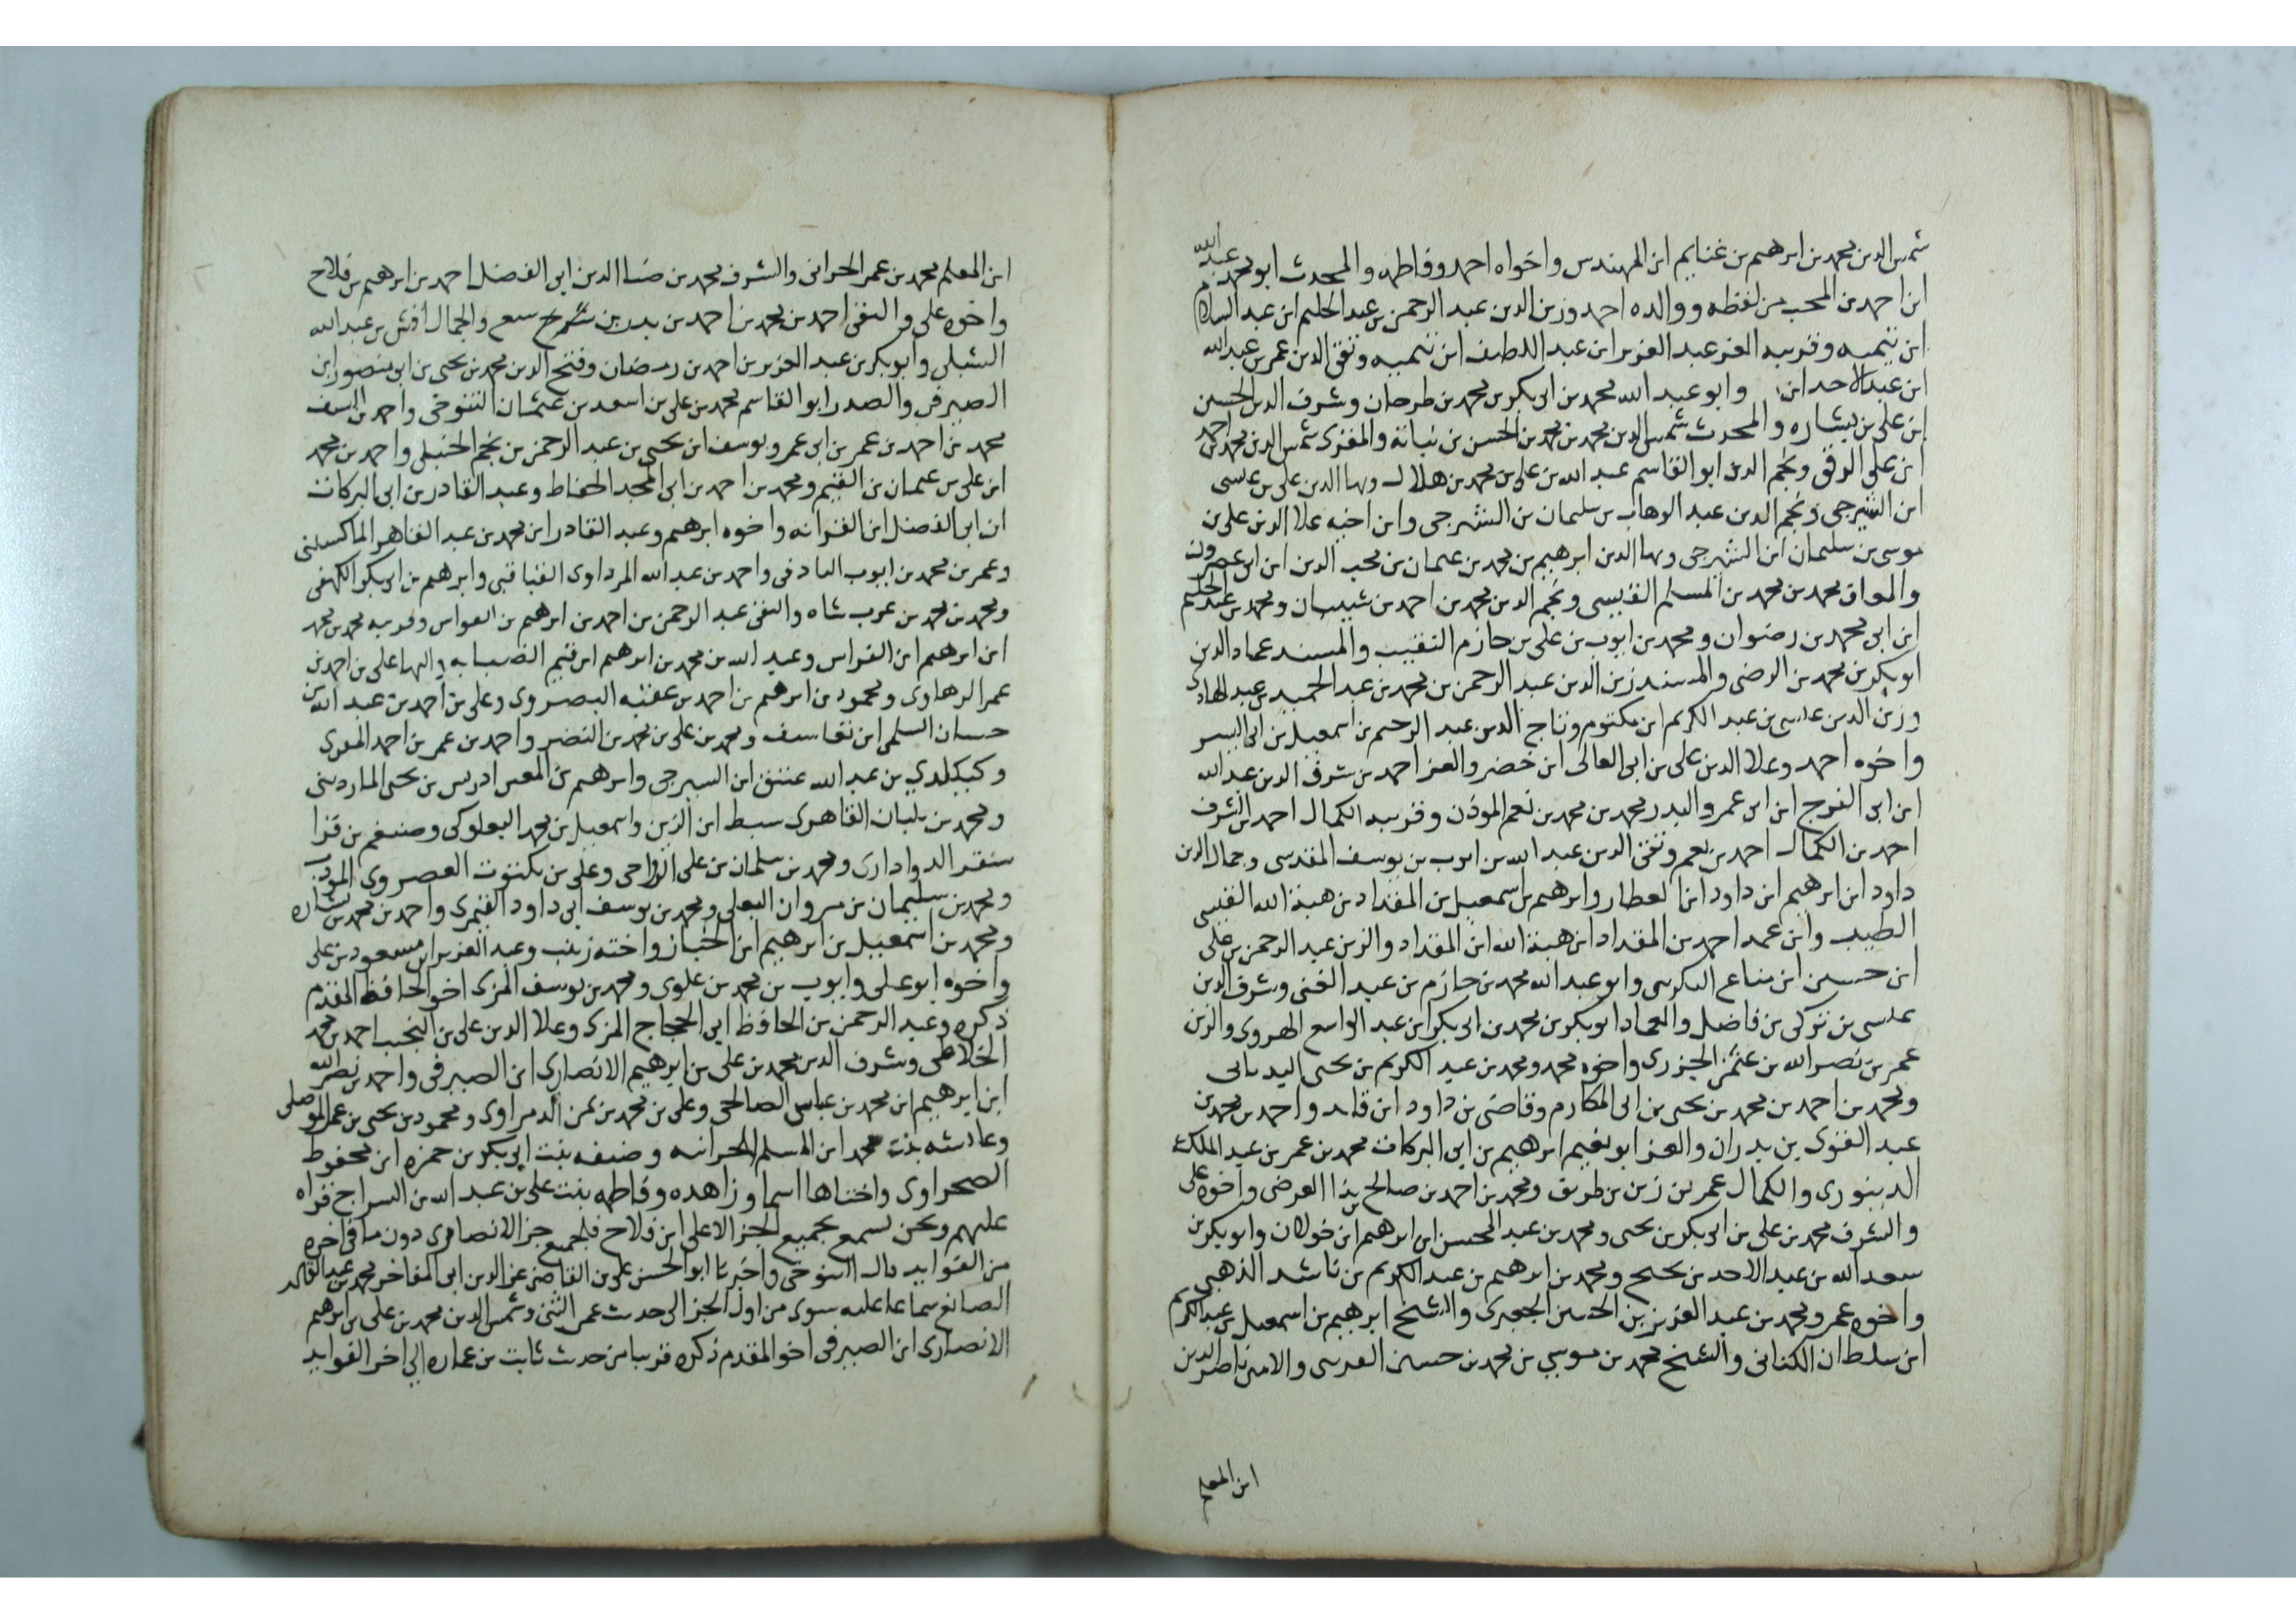 شمس الدين محمد بن ابرهيم بن غنايم ابن المهندس واخواه احمد وفاطمه والمحدث ابو محمد عبد الله
ابن احمد بن المحب من لفظه ووالده احمد وزين الدين عبد الرحمن بن عبد الحليم ابن عبد السلام
ابن تيميه وقريبه العز عبد العزيز ابن عبد اللطيف ابن تيميه وتقى الدين عمر بن عبد الله
ابن عبد الاحد ابن وابو عبد الله محمد بن ابى بكر بن محمد بن طرحان وشرف الدين الحسين
ابن على بن بشاره والمحدث شمس الدين محمد بن محمد بن الحسن بن نباتة والمقرى شمس الدين محمد بن احمد
ابن على الرقى ونجم الدين ابو القاسم عبد الله بن على بن محمد بن هلال وبها الدين على بن عيسى
ابن الشيرجى ونجم الدين عبد الوهاب بن سليمان بن الشيرجى وابن اخيه علا الدين على بن
موسى بن سليمان ابن الشيرجى وبها الدين ابرهيم بن محمد بن عثمان بن محب الدين ابن ابى عصرون
محمد بن محمد بن المسلم القيسى ونجم الدين محمد بن احمد بن شيبان ومحمد بن عبد الحليم
ابن ابى محمد بن رضوان ومحمد بن ايوب بن على بن حازم النقيب والمسند عماد الدين
ابو بكر بن محمد بن الرضى والمسند زين الدين عبد الرحمن بن محمد بن عبد الحميد بن عبد الهادى
وزين الدين عيسى بن عبد الكريم ابن مكتوم وتاج الدين عبد الرحيم بن اسمعيل بن ابى اليسر
واخوه احمد وعلا الدين على بن ابى المعالى ابن خضر والعز احمد بن شرف الدين عبد الله
ابن ابى الفرج ابن ابى عمر والبدر محمد بن محمد بن نعم الموذن وقريبه الكمال احمد بن الشرف
احمد بن الكمال احمد بن نعم وتقى الدين عبد الله بن ايوب بن يوسف المقدسى وجمال الدين
داود ابن ابرهيم ابن داود ابنا لعطار وابرهيم بن اسمعيل بن المقداد بن هبة الله القيسى
الطبيب وابن عمه احمد بن المقداد ابن هبة الله ابن المقداد والزين عبد الرحمن بن على
ابن حسين ابن مناع التكريتى وابو عبد الله محمد بن حازم بن عبد الغنى وشرف الدين
عيسى بن تركى بن فاضل والعماد ابو بكر بن محمد بن ابى بكر ابن عبد الواسع الهروى والزين
عمر بن نصر الله بن عثمن الجزرى واخوه محمد ومحمد بن عبد الكريم بن يحيى
ومحمد بن احمد بن محمد بن يحيى بن ابى المكارم وقاضى بن داود ابن قايد واحمد بن محمد بن
عبد القوى بن بدران والعز ابو نعيم ابرهيم بن ابى البركات محمد بن عمر بن عبد الملك
الدينورى والكمال عمر بن زين بن طريق ومحمد بن احمد بن صالح العرضى واخوه على
والشرف محمد بن على بن ابى بكر بن يحيى ومحمد بن عبد المحسن ابن ابرهيم ابن خولان وابو بكر بن
سعد الله بن عبد الاحد بن بحيح ومحمد بن ابرهيم بن عبد الكريم بن ناشد الذهبى
واخوه عمر ومحمد بن عبد العزيز بن الحسين الجعبرى والشيخ ابرهيم بن اسمعيل بن عبد الكريم
ابن سلطان الكنانى والشيخ محمد بن موسى بن محمد بن حسين القدسى والامين ناصر الدين
ابن المعلم
ابن المعلم محمد بن عمر الحرانى والشرف محمد بن ضيا الدين ابى الفضل احمد بن ابرهيم بن فلاح
واخوه على والتقى احمد بن محمد بن احمد بن بدر بن سمع والجمال اقش بن عبد الله
الشبلى وابو بكر بن عبد العزيز بن احمد بن رمضان وفتح الدين محمد بن يحيى بن ابى منصور ابن
الصيرفى والصدر ابو القاسم محمد بن على بن اسعد بن عثمان التنوخى واحمد بن
محمد بن احمد بن عمر بن ابى عمر ويوسف ابن يحيى بن عبد الرحمن بن نجم الحنبلى واحمد بن محمد
ابن على بن عثمان بن القيم ومحمد بن احمد بن ابى المجد الخياط وعبد القادر بن ابى البركات
ابن ابى الفضل ابن القرانه واخوه ابرهيم وعبد القادر ابن محمد بن عبد القاهر الماكسينى
وعمر بن محمد بن ايوب البادفى واحمد بن عبد الله المرداوى القباقبى وابرهيم بن ابى بكر الكهفى
ومحمد بن محمد بن عرب شاه والتقى عبد الرحمن بن احمد بن ابرهيم بن القواس وقريبه محمد بن محمد
ابن ابرهيم ابن القواس وعبد الله بن محمد بن ابرهيم ابن قيم الضيائيه والبها على بن احمد بن
عمر الرهاوى ومحمود بن ابرهيم بن احمد بن عقبه البصروى وعلى بن احمد بن عبد الله بن
حسان السلمى ومحمد بن على بن محمد بن النضر واحمد بن عمر بن احمد المقرى
وكيكلدي بن عبد الله عتيق ابن السيرجى وابرهيم بن ادريس بن يحيى الماردينى
ومحمد بن بلبان القاهرى سبط ابن الزين واسمعيل بن محمد البعلوكى وضيغم بن قرا
سنقر الدوادارى ومحمد بن سلمان بن على الزواحى وعلى بن بكتوت العصروى المودب
ومحمد بن سليمان بن مروان البعلى ومحمد بن يوسف ابى داود القيمرى واحمد بن محمد بن بشاره
ومحمد بن اسمعيل بن ابرهيم ابن الخباز واخته زينب وعبد العزيز ابن مسعود بن على
واخوه ابو على وايوب بن محمد بن علوى ومحمد بن يوسف المزى اخو الحافظ المقدم
ذكره وعبد الرحمن بن الحافظ ابى الحجاج المزى وعلا الدين على بن النجيب احمد بن محمد
الخلاطى وشرف الدين محمد بن على بن ابرهيم الانصارى ابن الصيرفى واحمد بن نصر الله
ابن ابرهيم ابن محمد بن عباس الصالحى وعلى بن محمد بن الدمراوى ومحمود بن يحيى بن عمر الموصلى
وعائشه بنت محمد ابن المسلم الحرانيه وضيفه بنت ابى بكر بن حمزه ابن محفوظ
الصحراوى واختاها اسما وزاهده وفاطمه بنت على بن عبد الله بن السراج قراه
عليهم ونحن نسمع بجميع الجز الا على ابن فلاح فبجميع جز الانصارى دون ما فى اخره
من الفوايد قال التنوخى واخبرنا ابو الحسن على بن القاضى عز الدين ابى المفاخر محمد بن عبد القادر
الصائغ سماعا عليه سوى من اول الجز الى حدث عمر الثنى وشمس الدين محمد بن على بن ابرهيم
الانصارى ابن الصيرفى اخو المقدم ذكره قريبا من حدث ثابت بن عماره الى اخر الفوايد